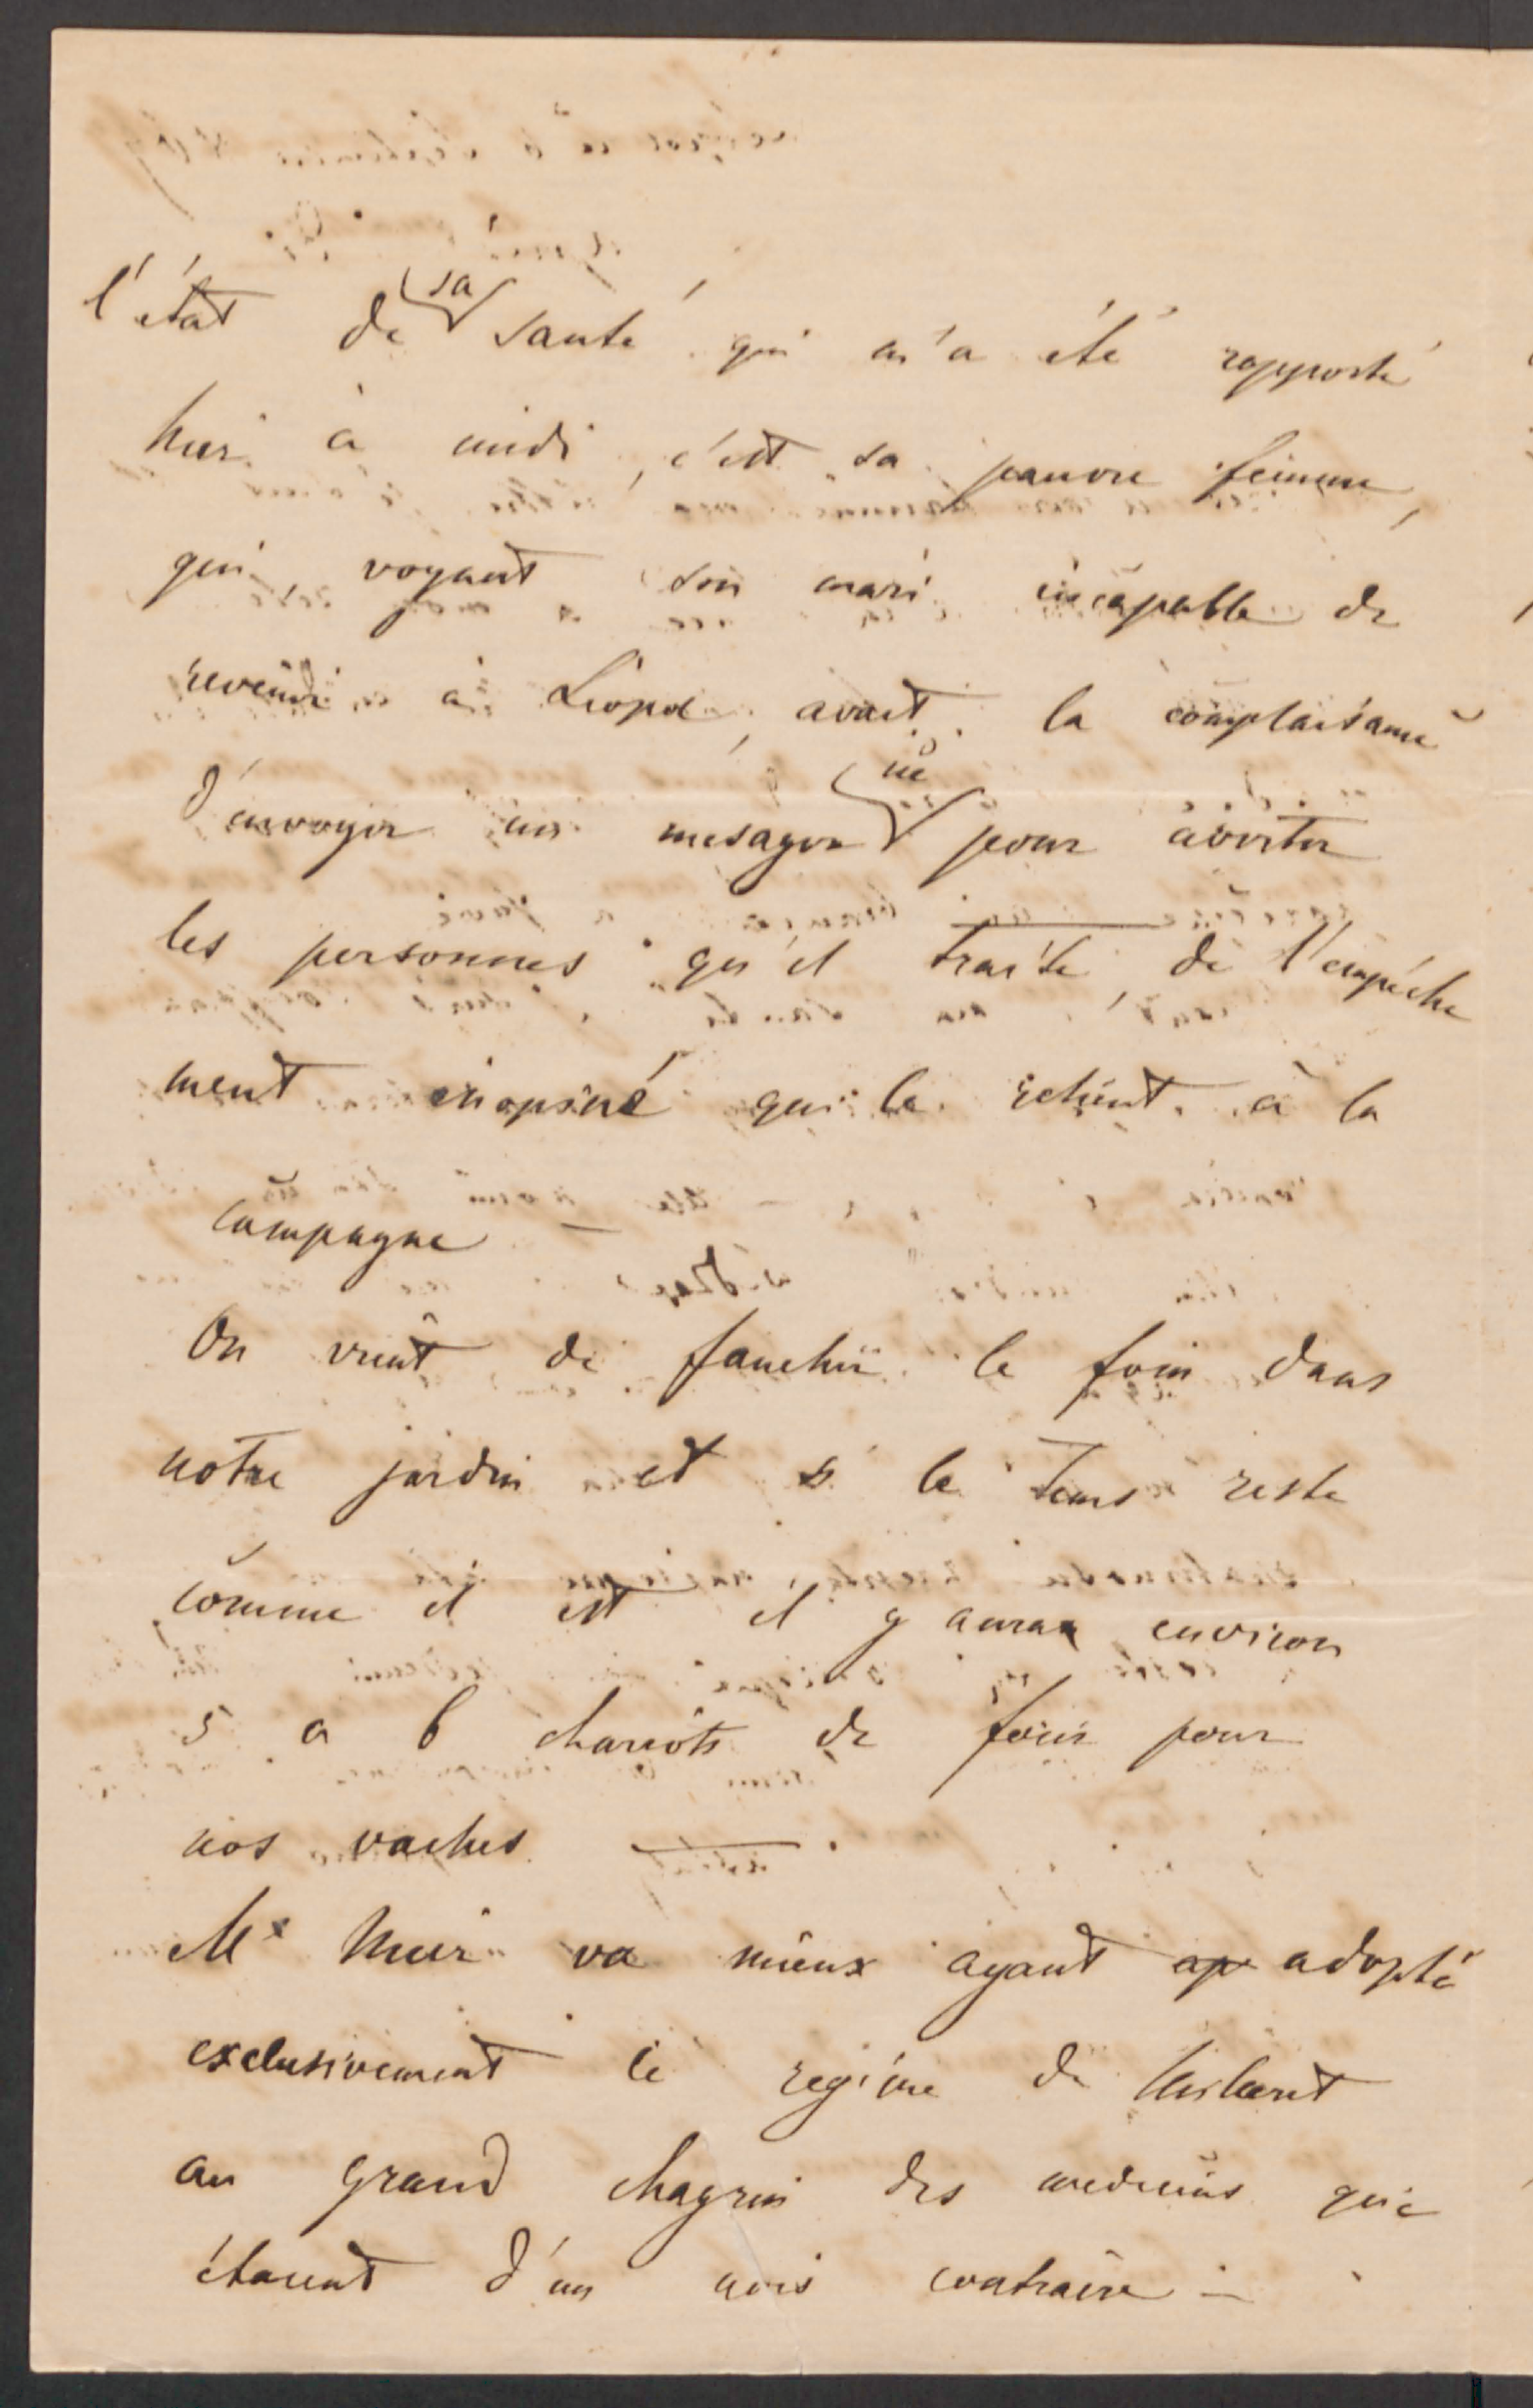 l'état de sa santé qui m'a été rapporté
hier à midi, c'est sa pauvre femme,
qui, voyant son mari incapable de
revenir à Léopol, avait la complaisance
d'envoyer un mesager ici pour avertir
les personnes qu'il traite, de l'empêche
ment inopiné qui le retient à la
campagne —
On vient de faucher le foin dans
notre jardin et si le tems reste
comme il est il y aura environ
5 a 6 chariots de foin pour
nos vaches. —
Mr va mieux ayant ap adopté
exclusivement le regime de
au grand chagrin des medecins qui
étaient d'un avis contraire —